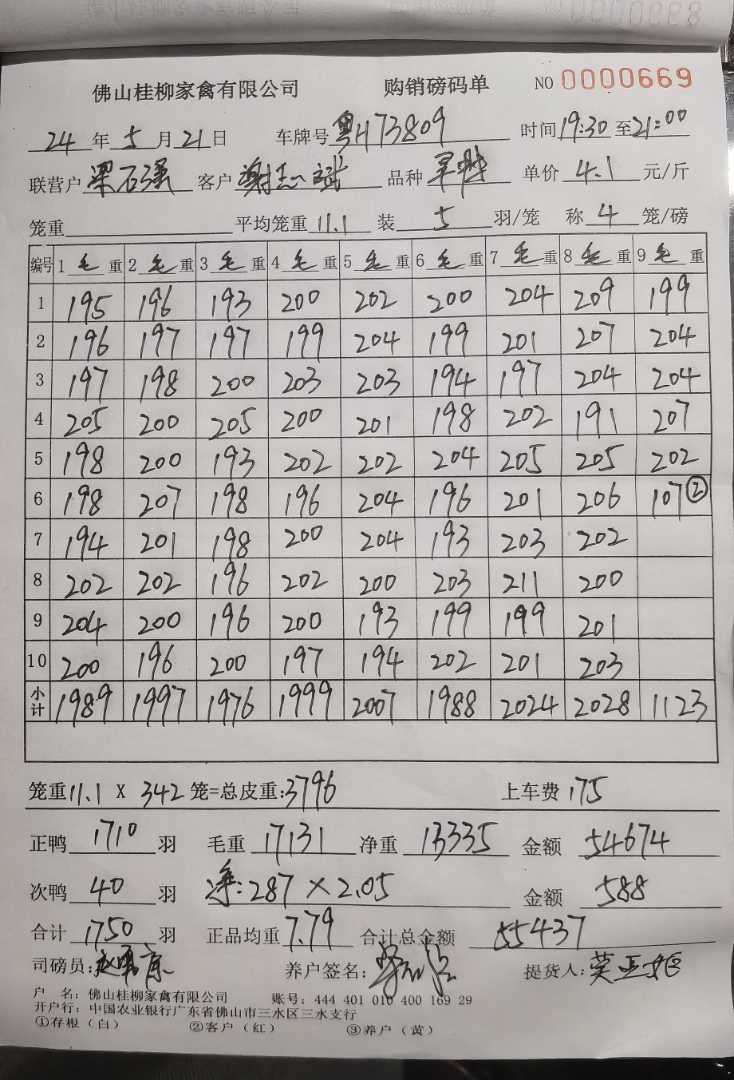 佛山桂柳家禽有限公司 购销磅码单 NO 0000669
24 年 5 月 21 日 车牌号 粤H73809 时间 19:30 至 21:00
联营户 梁石强 客户 谢志斌 品种 单价 4.1 元/斤
笼重 平均笼重 11.1 装 5 羽/笼 称 4 笼/磅
编号 1 毛 重 2 毛 重 3 毛 重 4 毛 重 5 毛 重 6 毛 重 7 毛 重 8 毛 重 9 毛 重
1 195 196 193 200 202 200 204 209 199
2 196 197 197 199 204 199 201 207 204
3 197 198 200 203 203 194 197 204 204
4 205 200 205 200 201 198 202 191 207
5 198 200 193 202 202 204 205 205 202
6 198 207 198 196 204 196 201 206 107 ②
7 194 201 198 200 204 193 203 202
8 202 202 196 202 200 203 211 200
9 204 200 196 200 193 199 199 201
10 200 196 200 197 194 202 201 203
小计 1989 1997 1976 1999 2007 1988 2024 2028 1123
笼重 11.1 X 342 笼=总皮重: 3796 上车费 175
正鸭 1710 羽 毛重 17131 净重 13335 金额 54674
次鸭 40 羽 净: 287 × 2.05 金额 588
合计 1750 羽 正品均重 7.79 合计总金额 55437
司磅员: 养户签名: 提货人:
户 名: 佛山桂柳家禽有限公司 账号: 444 401 010 400 169 29
开户行: 中国农业银行广东省佛山市三水区三水支行
①存根(白) ②客户(红) ③养户(黄)